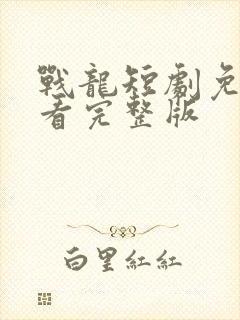 戰龍短劇免
看完整版
白里紅紅